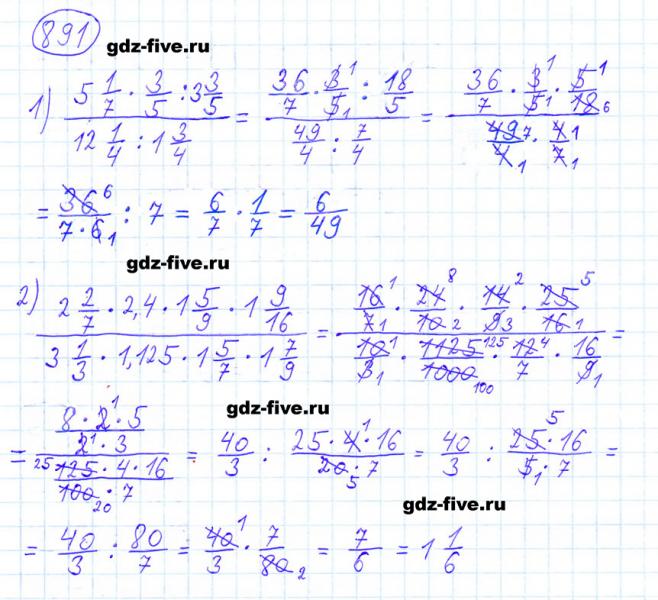 891
gdz-five.ru
1) (5 1/7 · 3/5 : 3 3/5) / (12 1/4 : 1 3/4) = (36/7 · 3 1/5 1 : 18/5) / (49/4 : 7/4) = (36/7 · 3 1/5 1 · 5 1/18 6) / (49 7/4 1 · 4 1/7 1)
= 36 6/(7 · 6 1) : 7 = 6/7 · 1/7 = 6/49
gdz-five.ru
2) (2 2/7 · 2,4 · 1 5/9 · 1 9/16) / (3 1/3 · 1,125 · 1 5/7 · 1 7/9) = (16 1/7 1 · 24 8/10 2 · 14 2/9 3 · 25 5/16 1) / (10 1/3 1 · 1125 125/1000 100 · 12 4/7 · 16/9 1) =
gdz-five.ru
= ((8 · 2 1 · 5)/(2 1 · 3)) / ((25 125 · 4 · 16)/(100 20 · 7)) = 40/3 : (25 · 4 1 · 16)/(20 5 · 7) = 40/3 : (25 5 · 16)/(5 1 · 7) =
gdz-five.ru
= 40/3 : 80/7 = 40 1/3 · 7/80 2 = 7/6 = 1 1/6